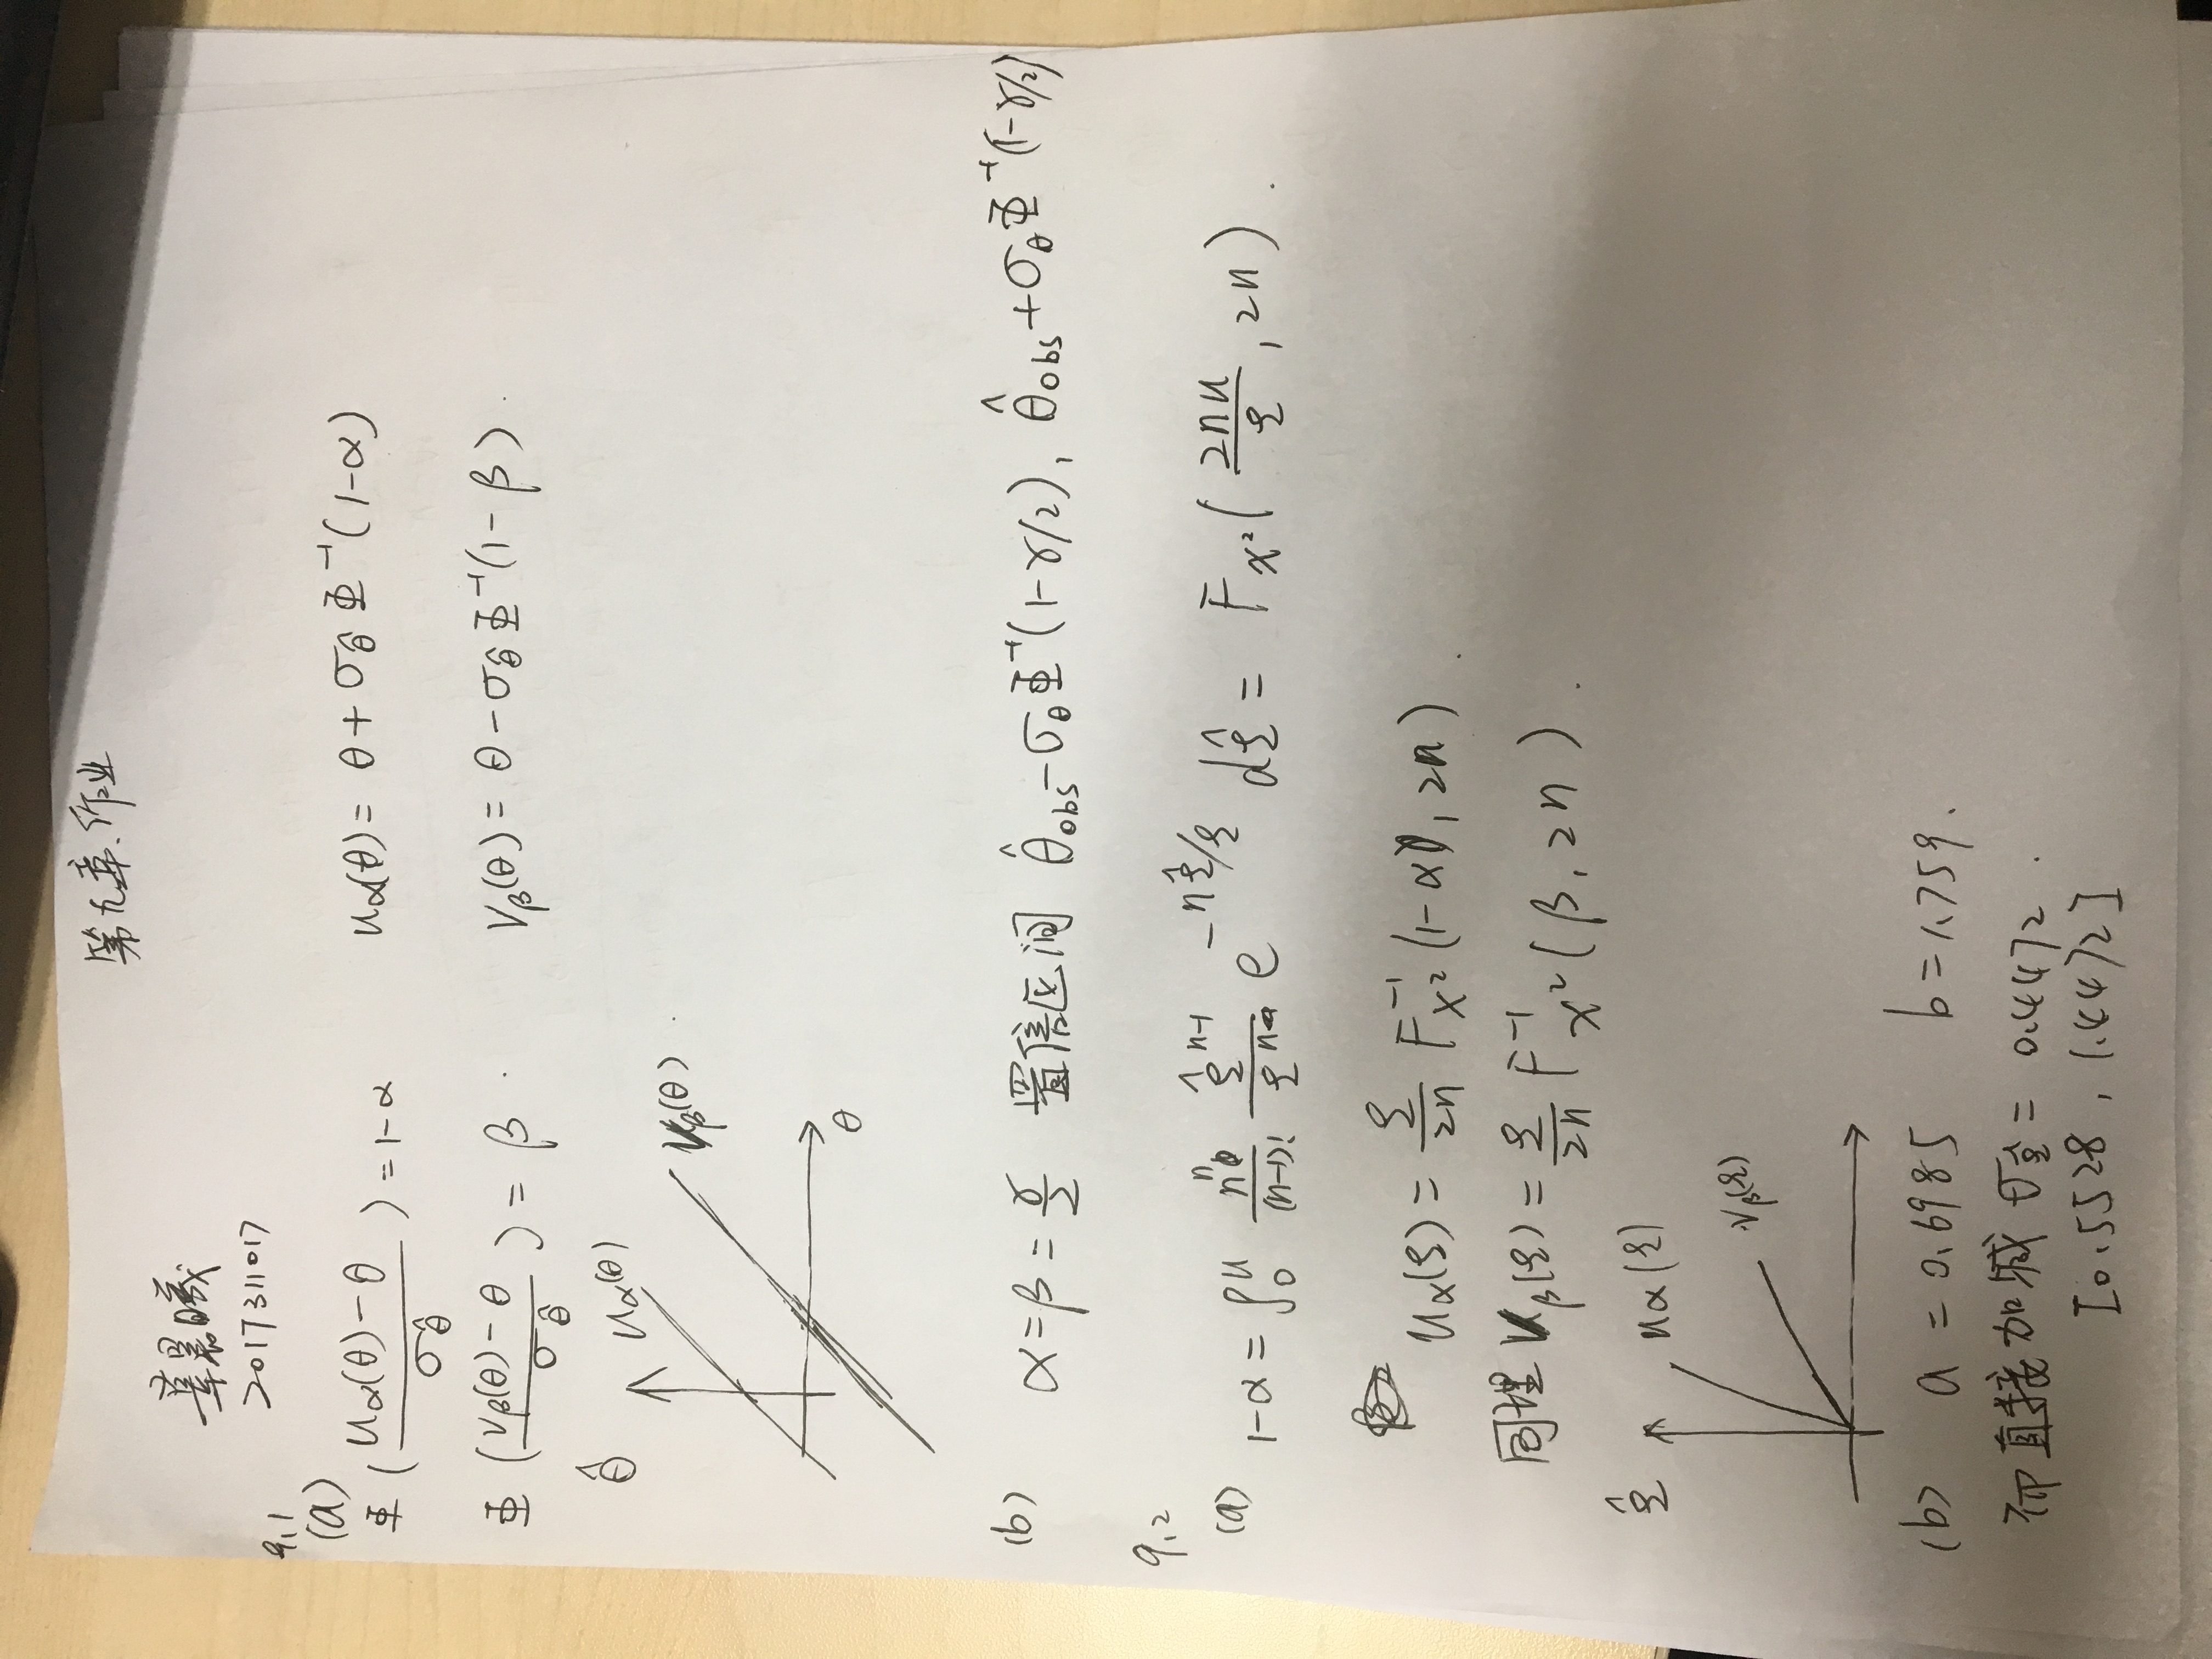 第九章.作业
覃晨曦
2017311017
9.1
(a)
Φ((uα(θ)-θ)/σ_θ̂)=1-α uα(θ)=θ+σ_θ̂ Φ⁻¹(1-α)
Φ((vβ(θ)-θ)/σ_θ̂)=β vβ(θ)=θ-σ_θ̂ Φ⁻¹(1-β).
θ̂ uα(θ)
vβ(θ)
θ
(b) α=β=γ/2 置信区间 θ̂obs-σ_θ Φ⁻¹(1-γ/2), θ̂obs+σ_θ Φ⁻¹(1-γ/2)
9.2
(a) 1-α=∫₀ᵘ nⁿ/(n-1)! ξ̂ⁿ⁻¹/ξⁿ e^(-nξ̂/ξ) dξ̂ = F_χ²(2nu/ξ, 2n).
uα(ξ)=ξ/2n F⁻¹_χ²(1-α, 2n).
同理 vβ(ξ)=ξ/2n F⁻¹_χ²(β, 2n).
ξ̂ uα(ξ)
vβ(ξ)
(b) a=0.6985 b=1.759.
而直接加减 σ_ξ̂=0.4472.
[0.5528, 1.4472]